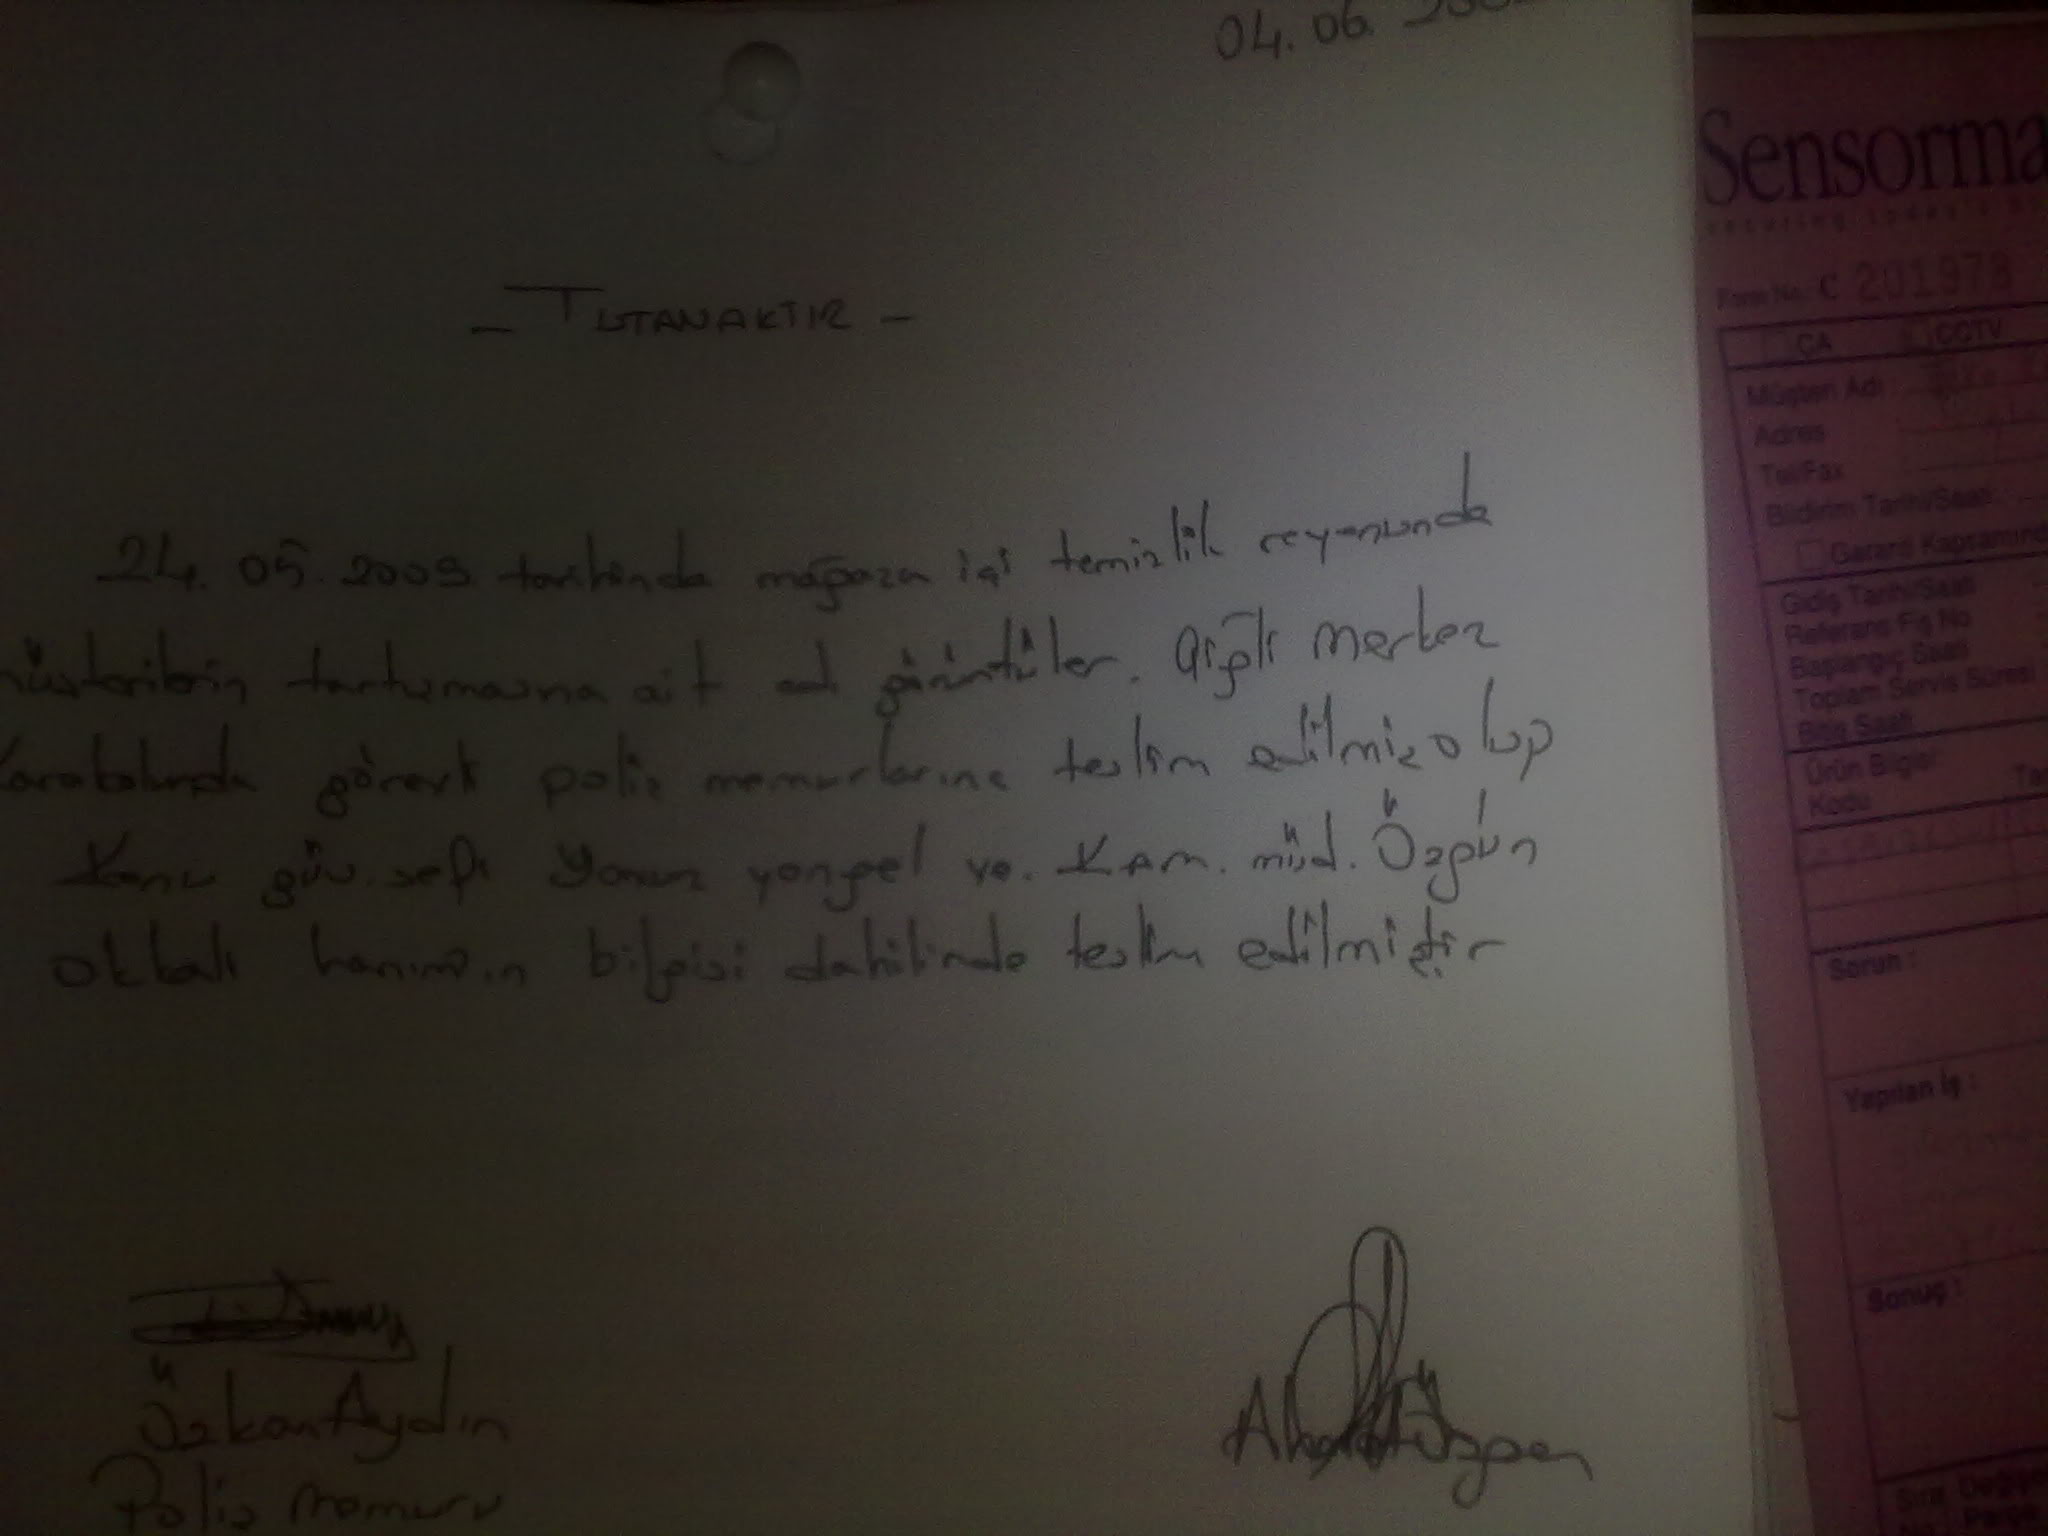 04. 06.
- TUTANAKTIR -
24. 05. 2009 tarihinde mağaza içi temizlik reyonunda
müşterilerin tartışmasına ait cd görüntüler. Çiğli Merkez
Karakolunda görevli polis memurlarına teslim edilmiş olup
Konu güv. şefi Yavuz yongel ve. KAm. müd. Özgün
oktalı hanımın bilgisi dahilinde teslim edilmiştir
Özkan Aydın
Polis memuru
Özgen
Sensorma
Form No: C 201973
CA CCTV
Müşteri Adı :
Adres
Tel/Fax
Bildirim Tarihi/Saati
Garanti Kapsamınd
Gidiş Tarihi/Saati
Referans Fiş No
Başlangıç Saati
Toplam Servis Süresi
Bitiş Saati
Ürün Bilgisi
Kodu
Sorun :
Yapılan İş :
Sonuç :